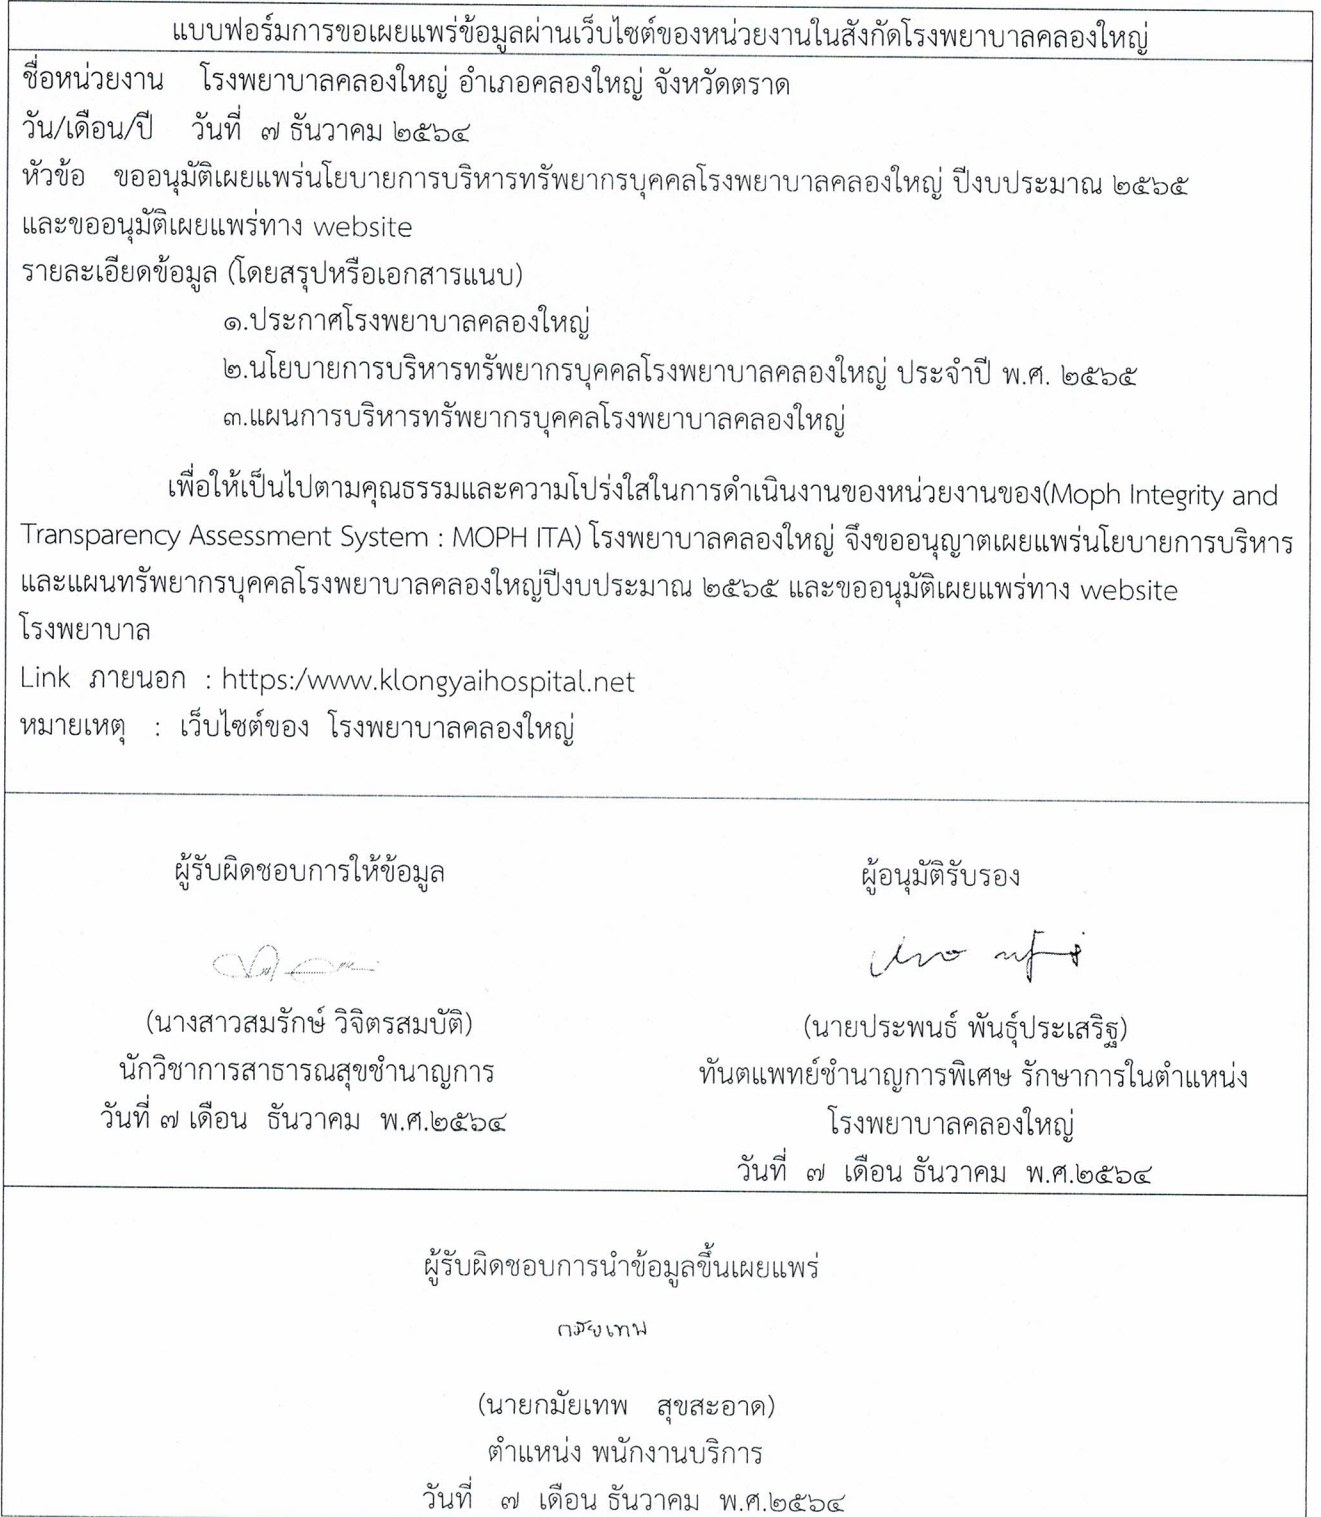 แบบฟอร์มการขอเผยแพร่ข้อมูลผ่านเว็บไซต์ของหน่วยงานในสังกัดโรงพยาบาลคลองใหญ่
ชื่อหน่วยงาน โรงพยาบาลคลองใหญ่ อำเภอคลองใหญ่ จังหวัดตราด
วัน/เดือน/ปี วันที่ ๗ ธันวาคม ๒๕๖๔
หัวข้อ ขออนุมัติเผยแพร่นโยบายการบริหารทรัพยากรบุคคลโรงพยาบาลคลองใหญ่ ปีงบประมาณ ๒๕๖๕
และขออนุมัติเผยแพร่ทาง website
รายละเอียดข้อมูล (โดยสรุปหรือเอกสารแนบ)
๑.ประกาศโรงพยาบาลคลองใหญ่
๒.นโยบายการบริหารทรัพยากรบุคคลโรงพยาบาลคลองใหญ่ ประจำปี พ.ศ. ๒๕๖๕
๓.แผนการบริหารทรัพยากรบุคคลโรงพยาบาลคลองใหญ่
เพื่อให้เป็นไปตามคุณธรรมและความโปร่งใสในการดำเนินงานของหน่วยงานของ(Moph Integrity and
Transparency Assessment System : MOPH ITA) โรงพยาบาลคลองใหญ่ จึงขออนุญาตเผยแพร่นโยบายการบริหาร
และแผนทรัพยากรบุคคลโรงพยาบาลคลองใหญ่ปีงบประมาณ ๒๕๖๕ และขออนุมัติเผยแพร่ทาง website
โรงพยาบาล
Link ภายนอก : https:/www.klongyaihospital.net
หมายเหตุ : เว็บไซต์ของ โรงพยาบาลคลองใหญ่
ผู้รับผิดชอบการให้ข้อมูล
(นางสาวสมรักษ์ วิจิตรสมบัติ)
นักวิชาการสาธารณสุขชำนาญการ
วันที่ ๗ เดือน ธันวาคม พ.ศ.๒๕๖๔
ผู้อนุมัติรับรอง
(นายประพนธ์ พันธุ์ประเสริฐ)
ทันตแพทย์ชำนาญการพิเศษ รักษาการในตำแหน่ง
โรงพยาบาลคลองใหญ่
วันที่ ๗ เดือน ธันวาคม พ.ศ.๒๕๖๔
ผู้รับผิดชอบการนำข้อมูลขึ้นเผยแพร่
กมัยเทพ
(นายกมัยเทพ สุขสะอาด)
ตำแหน่ง พนักงานบริการ
วันที่ ๗ เดือน ธันวาคม พ.ศ.๒๕๖๔